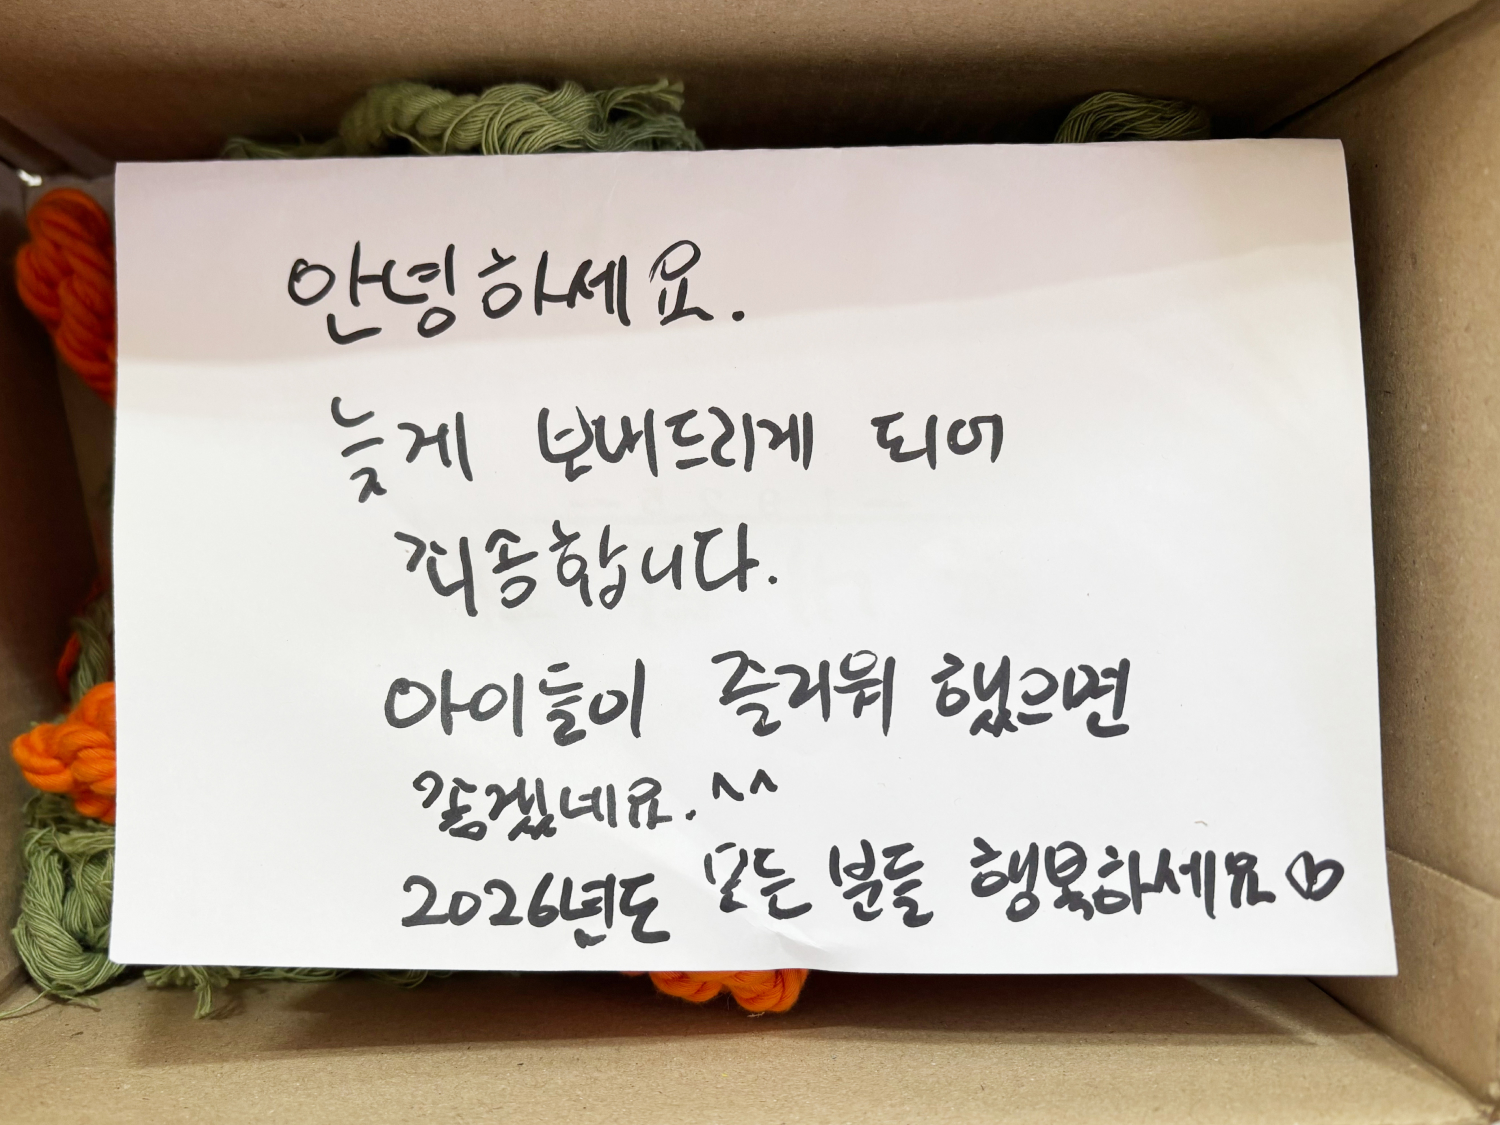 안녕하세요.
늦게 보내드리게 되어
죄송합니다.
아이들이 즐거워 했으면
좋겠네요.^^
2026년도 모든 분들 행복하세요♡